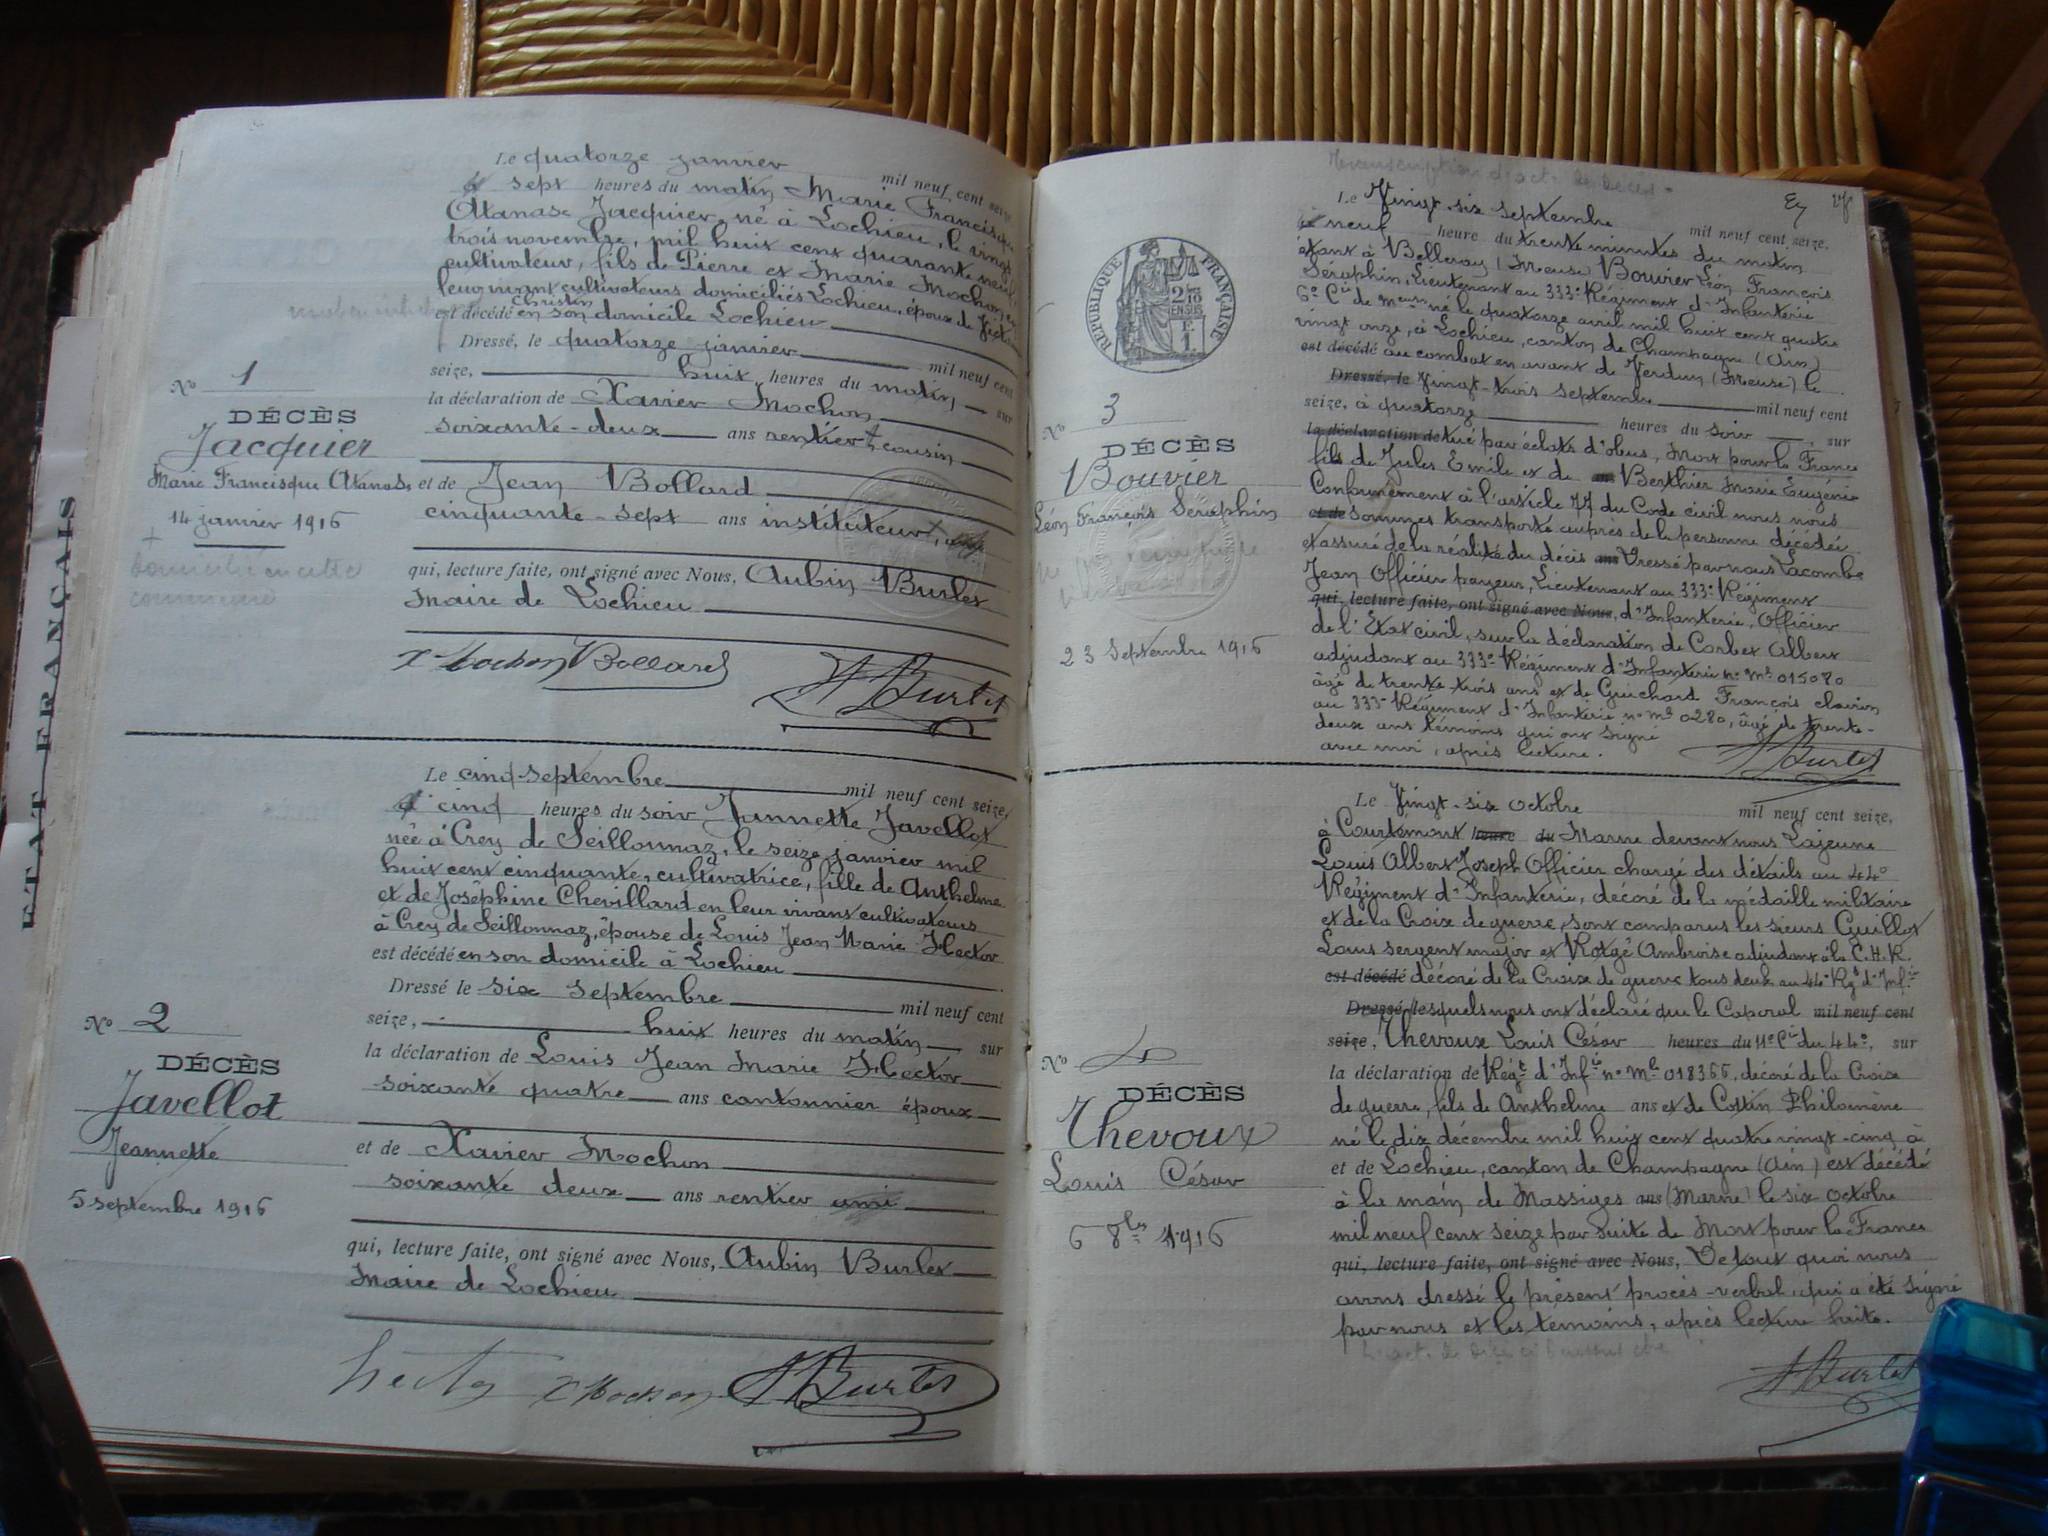 ETAT FRANÇAIS
Le quatorze janvier mil neuf cent seize
à sept heures du matin Marie Francisque
Atanase Jacquier, né à Lochieu, le vingt
trois novembre, mil huit cent quarante neuf
cultivateur, fils de Pierre et Marie Mochon, en
leur vivant cultivateurs domiciliés Lochieu, époux de
Christin
est décédé en son domicile Lochieu
Dressé, le quatorze janvier mil neuf cent
seize, huit heures du matin sur
la déclaration de Xavier Mochon
soixante-deux ans rentier, cousin
et de Jean Bollard
cinquante-sept ans instituteur,
qui, lecture faite, ont signé avec Nous, Aubin Burlet
Maire de Lochieu
X Mochon Bollard A Burlet
No 1
DÉCÈS
Jacquier
Marie Francisque Atanase
14 janvier 1916
+
domicilié en cette
commune
Le cinq septembre mil neuf cent seize,
à cinq heures du soir Jeannette Javellot
née à Creys de Seillonnaz, le seize janvier mil
huit cent cinquante, cultivatrice, fille de Anthelme
et de Joséphine Chevillard en leur vivant cultivateurs
à Creys de Seillonnaz, épouse de Louis Jean Marie Hector
est décédé en son domicile à Lochieu
Dressé le six septembre mil neuf cent
seize, huit heures du matin sur
la déclaration de Louis Jean Marie Hector
soixante quatre ans cantonnier époux
et de Xavier Mochon
soixante deux ans rentier ami
qui, lecture faite, ont signé avec Nous, Aubin Burlet
Maire de Lochieu
hector X Mochon A Burlet
No 2
DÉCÈS
Javellot
Jeannette
5 septembre 1916
Transcription d'acte de décès
Le Vingt-six septembre mil neuf cent seize,
à neuf heure du trente minutes du matin
étant à Belleray (Meuse) Bouvier Léon François
Séraphin, Lieutenant au 333e Régiment d'Infanterie
6e Cie de né le quatorze avril mil huit cent quatre
vingt onze, à Lochieu, canton de Champagne (Ain)
est décédé au combat en avant de Verdun (Meuse) le
Dressé, le Vingt-trois septembre mil neuf cent
seize, à quatorze heures du soir, sur
la déclaration de tué par éclats d'obus, Mort pour la France
fils de Jules Emile et de ans Berthier Marie Eugénie
Conformément à l'article 77 du Code civil nous nous
et de sommes transporté auprès de la personne décédée
et assuré de la réalité du décès ans Dressé par nous Lacombe
Jean Officier payeur, Lieutenant au 333e Régiment
qui, lecture faite, ont signé avec Nous, d'Infanterie, Officier
de l'Etat civil, sur la déclaration de Corbet Albert
adjudant au 333e Régiment d'Infanterie no Mle 015080
âgé de trente trois ans et de Guichard François clairon
au 333e Régiment d'Infanterie no Mle 0280, âgé de trente-
deux ans témoins qui ont signé
avec moi, après lecture.
A Burlet
RÉPUBLIQUE FRANÇAISE
2/10
EN SUS
1 F.
No 3
DÉCÈS
Bouvier
Léon François Séraphin
23 Septembre 1916
Le Vingt-six octobre mil neuf cent seize,
à Courtémont heure du Marne devant nous Lajeune
Louis Albert Joseph Officier chargé des détails au 44e
Régiment d'Infanterie, décoré de la médaille militaire
et de la Croix de guerre, sont comparus les sieurs Guillot
Louis sergent major et Rotgé Ambroise adjudant à la C.H.R.
est décédé décoré de la Croix de guerre tous deux au 44e Rgt d'Infie
Dressé, le lesquels nous ont déclaré que le Caporal mil neuf cent
seize, Thevoux Louis César heures du 11e Cie du 44e, sur
la déclaration de Régt d'Infie no Mle 018366, décoré de la Croix
de guerre, fils de Anthelme ans et de Cottin Philomène
né le dix décembre mil huit cent quatre vingt-cinq à
et de Lochieu, canton de Champagne (Ain) est décédé
à la main de Massiges ans (Marne) le six octobre
mil neuf cent seize par suite de Mort pour la France
qui, lecture faite, ont signé avec Nous, De tout quoi nous
avons dressé le présent procès-verbal, qui a été signé
par nous et les témoins, après lecture faite.
A Burlet
No 4
DÉCÈS
Thevoux
Louis César
6 8bre 1916